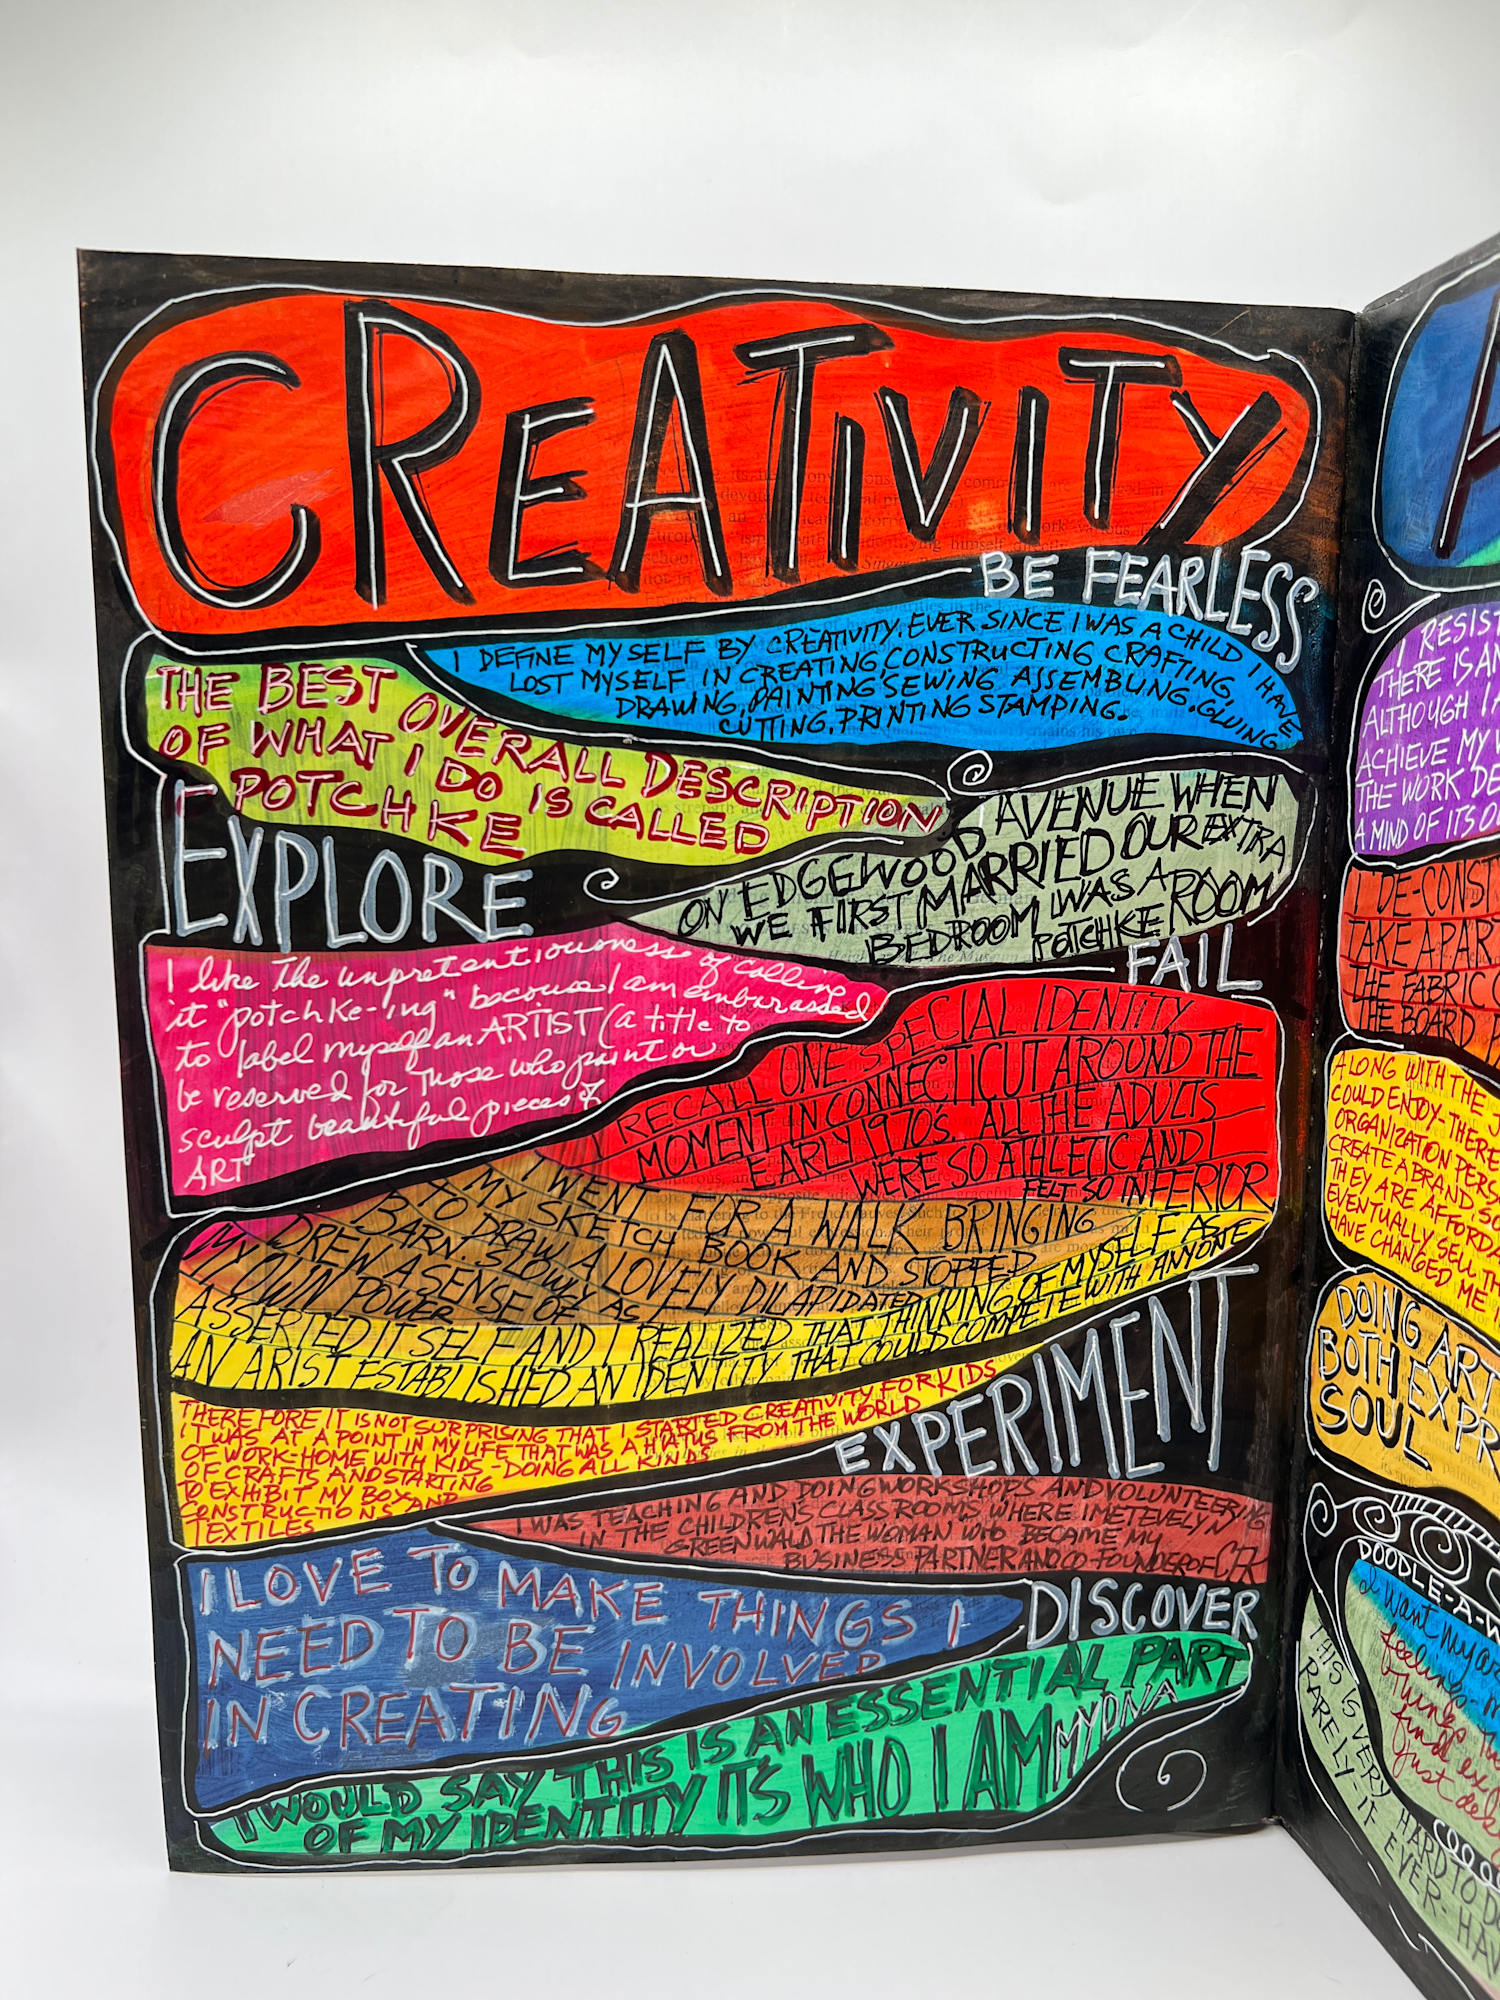 CREATIVITY
BE FEARLESS
I DEFINE MYSELF BY CREATIVITY. EVER SINCE I WAS A CHILD I HAVE
LOST MYSELF IN CREATING, CONSTRUCTING CRAFTING,
DRAWING, PAINTING, SEWING ASSEMBLING, GLUING
CUTTING, PRINTING STAMPING.
THE BEST OVERALL DESCRIPTION
OF WHAT I DO IS CALLED
POTCHKE
EXPLORE
ON EDGEWOOD AVENUE WHEN
WE FIRST MARRIED OUR EXTRA
BEDROOM WAS A
POTCHKE ROOM
FAIL
I like the unpretentiousness of calling
it "potchke-ing" because I am embarassed
to label myself an ARTIST (a title to
be reserved for those who paint or
sculpt beautiful pieces of
ART
I RECALL ONE SPECIAL IDENTITY
MOMENT IN CONNECTICUT AROUND THE
EARLY 1970's. ALL THE ADULTS
WERE SO ATHLETIC AND I
FELT SO INFERIOR
I WENT FOR A WALK BRINGING
MY SKETCH BOOK AND STOPPED
TO DRAW A LOVELY DILAPIDATED
BARN. SLOWLY AS I
DREW A SENSE OF
MY OWN POWER
ASSERTED ITSELF AND I REALIZED THAT THINKING OF MYSELF AS
AN ARIST ESTABLISHED AN IDENTITY THAT COULD COMPETE WITH ANYONE
EXPERIMENT
THEREFORE IT IS NOT SURPRISING THAT I STARTED CREATIVITY FOR KIDS
IT WAS AT A POINT IN MY LIFE THAT WAS A HIATUS FROM THE WORLD
OF WORK-HOME WITH KIDS-DOING ALL KINDS
OF CRAFTS AND STARTING
TO EXHIBIT MY BOXES
CONSTRUCTIONS AND
TEXTILES
I WAS TEACHING AND DOING WORKSHOPS AND VOLUNTEERING
IN THE CHILDRENS CLASSROOMS WHERE I MET EVELYN
GREENWALD THE WOMAN WHO BECAME MY
BUSINESS PARTNER AND CO-FOUNDER OF CFK
DISCOVER
I LOVE TO MAKE THINGS I
NEED TO BE INVOLVED
IN CREATING
I WOULD SAY THIS IS AN ESSENTIAL PART
OF MY IDENTITY IT'S WHO I AM MY DNA
A
I RESIST
THERE IS AN
ALTHOUGH I A
ACHIEVE MY
THE WORK DE
A MIND OF ITS O
I DE-CONST
TAKE APART
THE FABRIC
THE BOARD
ALONG WITH THE J
COULD ENJOY-THERE
ORGANIZATION PERS
CREATE A BRAND SO
THEY ARE AFFORDA
EVENTUALLY SELL TH
HAVE CHANGED ME
DOING ART
BOTH EXPR
SOUL
DOODLE-A-W
I want my ar
feelings-
things
find ex
just
THIS IS VERY HARD TO D
RARELY-IF EVER-HAV